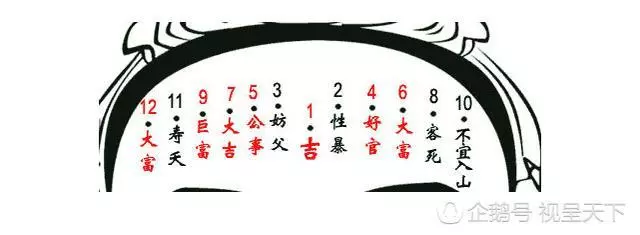 12•大富
11•寿夭
9•巨富
7•大吉
5•公事
3•妨父
1•吉
2•性暴
4•好官
6•大富
8•客死
10•不宜入山
企鹅号 视呈天下